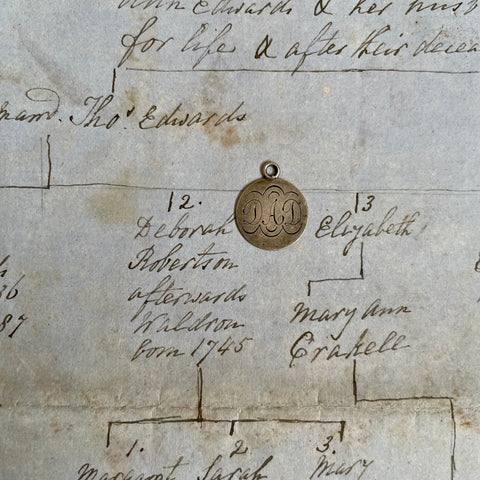 Ann Edwards & her husb
for life & after their decea
mard. Thos. Edwards
12.
Deborah
Robertson
afterwards
Waldron
born 1745
DAD
13
Elizabeth
Mary Ann
Crakell
36
87
1.
2
3.
Margaret
Sarah
Mary